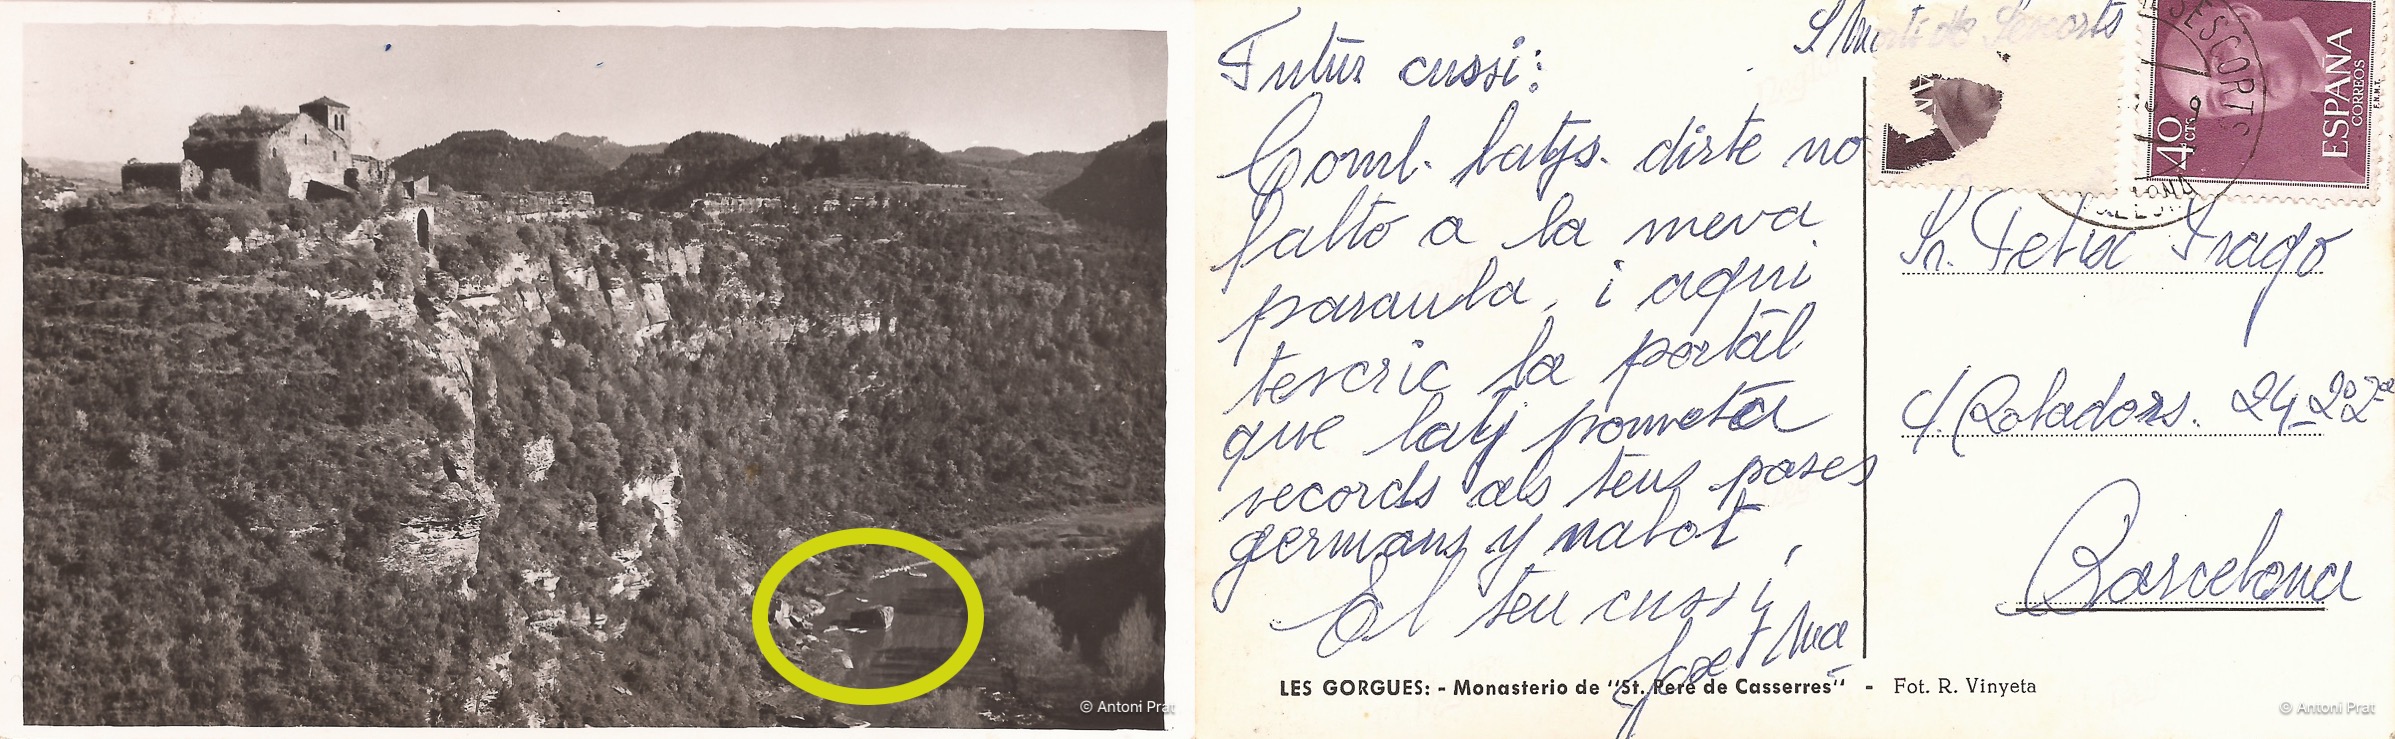 © Antoni Prat
S Martí de Sescorts
Futur cussi:
Coml. latjs. dirte no
falto a la meva
paraula, i aqui
tescric la portal
que latj prometa
records als teus pares
germans y nabot,
El teu cussi
Jose Mª
ESPAÑA
CORREOS
40 CTS
F.N.M.T.
SESCORTS
Sr. Felix Trago
c/. Roladors. 24-2º2ª
Barcelona
LES GORGUES: - Monasterio de "St. Pere de Casserres" - Fot. R. Vinyeta
© Antoni Prat